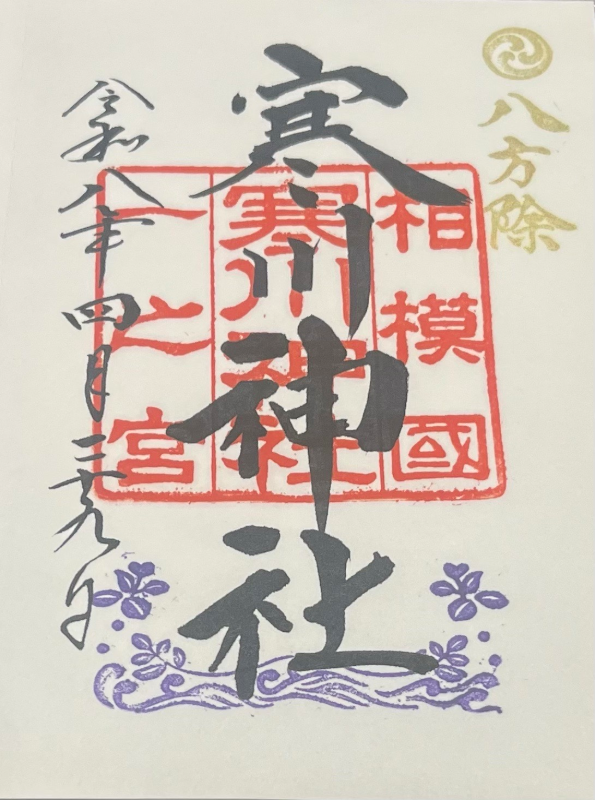 八方除
寒川神社
相模國
寒川神社
一之宮
令和八年四月二十九日